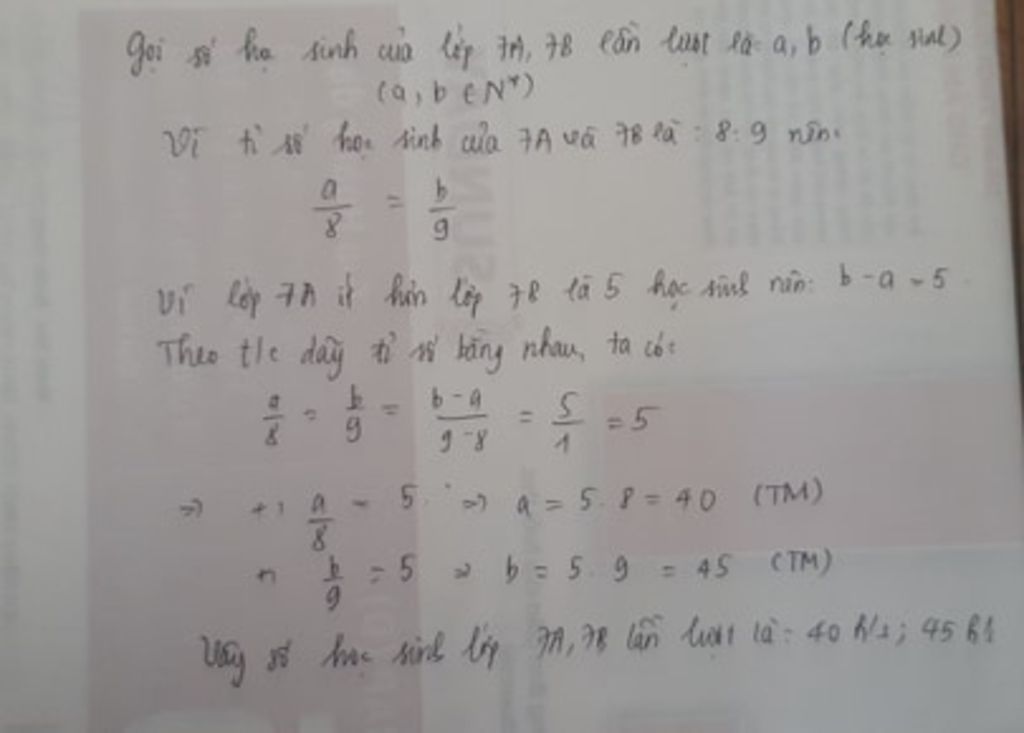 Gọi số họ sinh của lớp 7A, 7B lần lượt là: a, b (học sinh)
(a, b ∈ N*)
Vì tỉ số học sinh của 7A và 7B là: 8:9 nên:
a/8 = b/9
Vì lớp 7A ít hơn lớp 7B là 5 học sinh nên: b - a = 5
Theo t/c dãy tỉ số bằng nhau, ta có:
a/8 = b/9 = b - a/9 - 8 = 5/1 = 5
=> +) a/8 = 5 => a = 5. 8 = 40 (TM)
+) b/9 = 5 => b = 5. 9 = 45 (TM)
Vậy số học sinh lớp 7A, 7B lần lượt là: 40 h/s; 45 hs